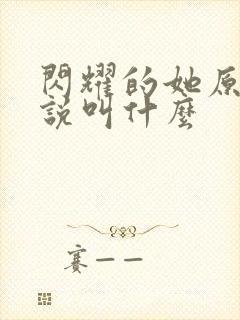 閃耀的她原
說叫什麼
賽——